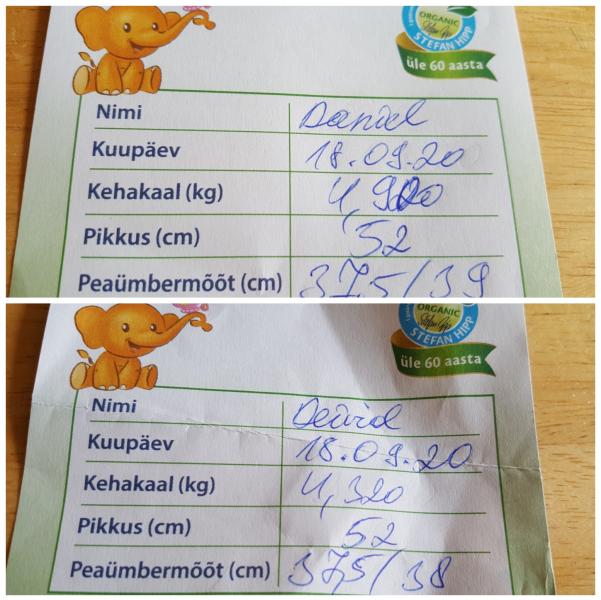 ORGANIC
STEFAN HIPP
üle 60 aasta
Nimi Daniel
Kuupäev 18.09.20
Kehakaal (kg) 4,920
Pikkus (cm) 52
Peaümbermõõt (cm) 37,5/39
ORGANIC
STEFAN HIPP
üle 60 aasta
Nimi
Kuupäev 18.09.20
Kehakaal (kg) 4,320
Pikkus (cm) 52
Peaümbermõõt (cm) 37,5/38